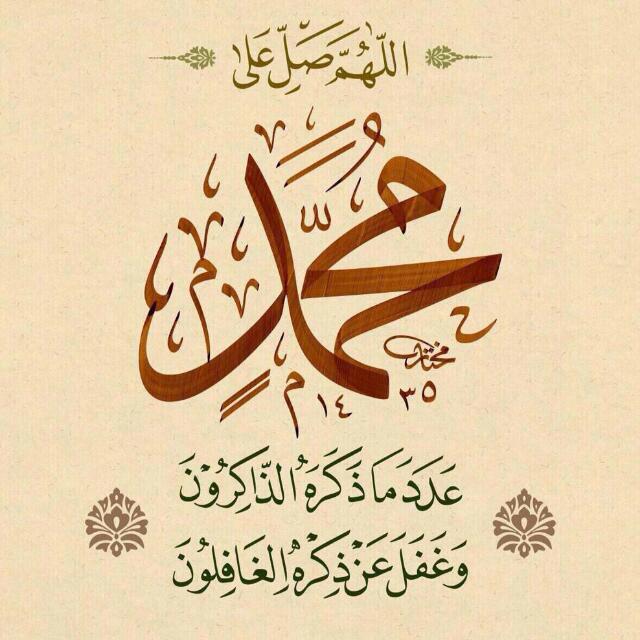 اللّٰهُمَّ صَلِّ عَلىٰ
مُحَمَّدٍ
مختار
١٤٣٥
عَدَدَ مَا ذَكَرَهُ الذَّاكِرُوْنَ
وَغَفَلَ عَنْ ذِكْرِهِ الغَافِلُوْنَ